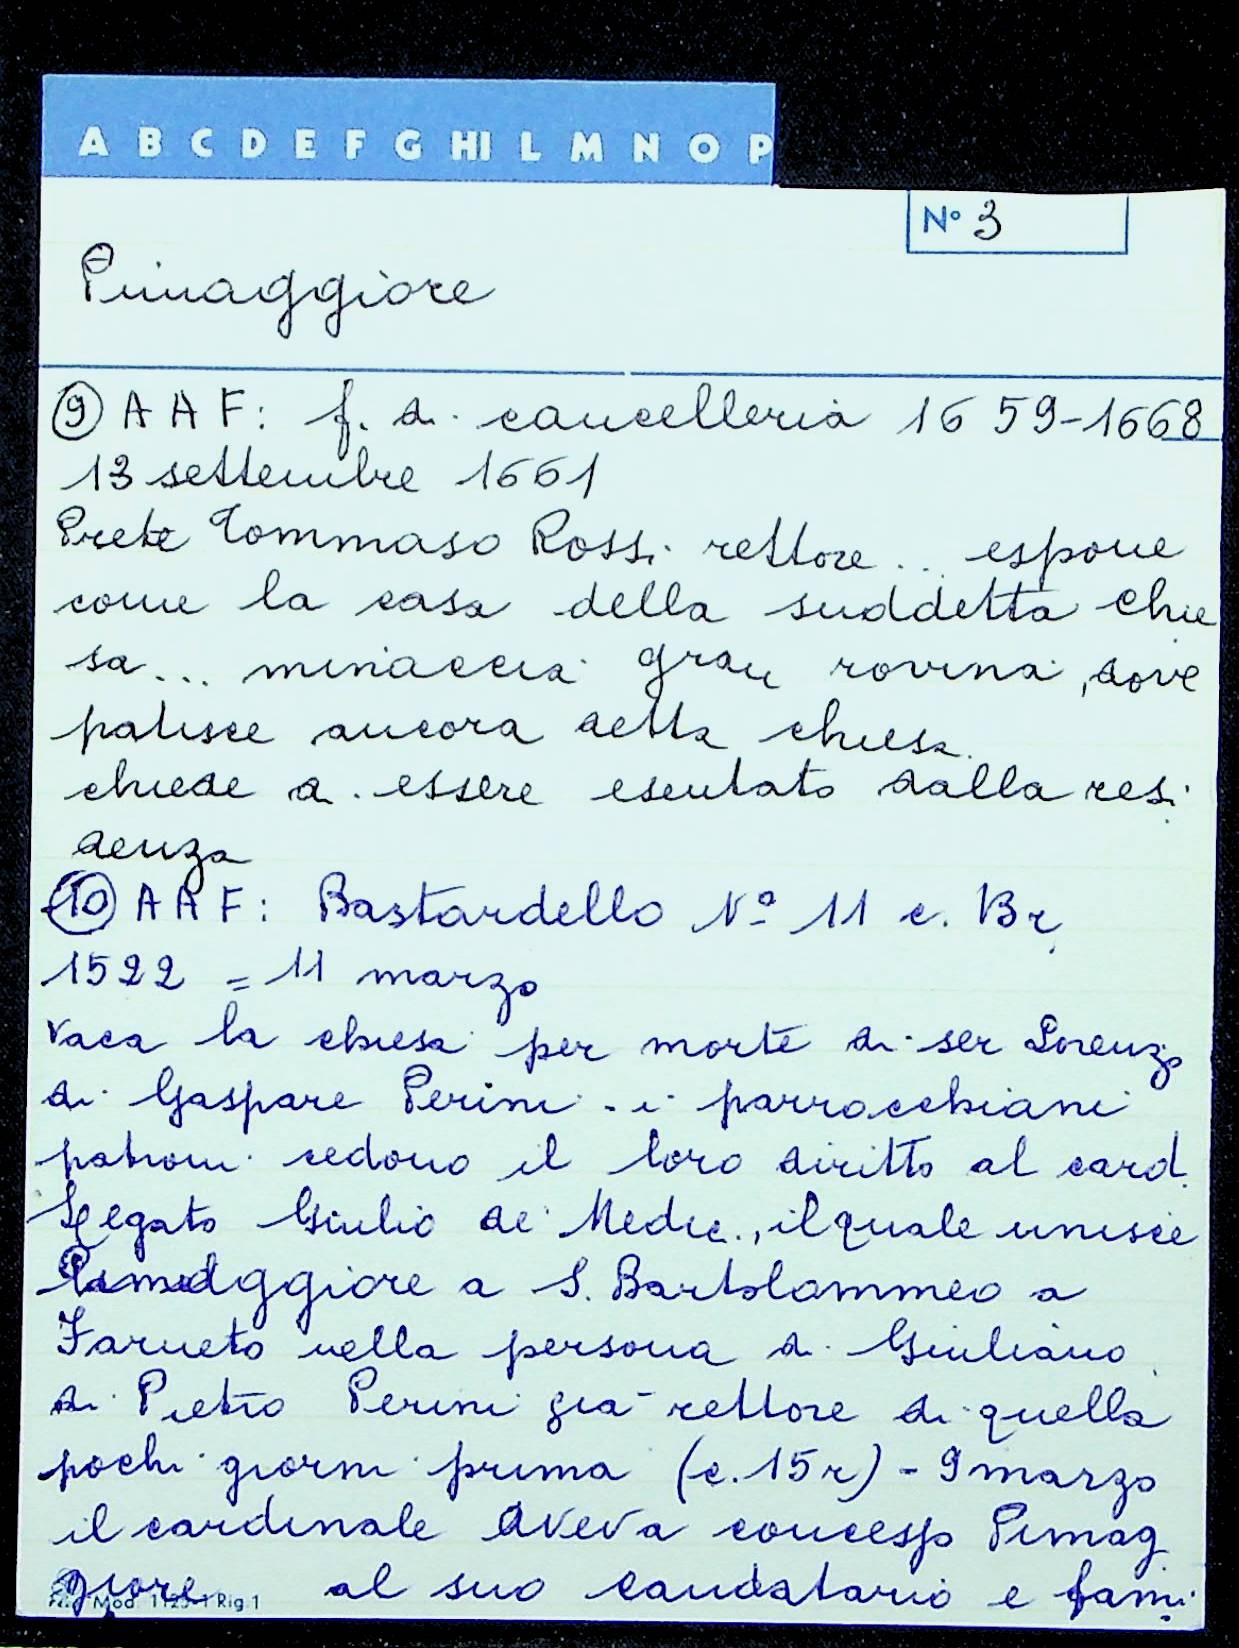 A B C D E F G HI L M N O P
Nº 3
Pimaggiore
9 A A F: f. di cancelleria 1659-1668
13 settembre 1661
Prete Tommaso Rossi rettore... espone
come la casa della suddetta chie
sa... minaccia gran rovina, dove
patisce ancora detta chiesa.
chiede di essere esentato dalla resi
denza
10 A A F: Bastardello Nº 11 c. 13r
1522 = 11 marzo
vaca la chiesa per morte di ser Lorenzo
di Gaspare Perini - i parrocchiani
patroni cedono il loro diritto al card.
Legato Giulio de' Medic., il quale unisce
Pimaggiore a S. Bartolommeo a
Farneto nella persona di Giuliano
di Pietro Perini già rettore di quella
pochi giorni prima (c. 15r) - 9 marzo
il cardinale aveva concesso Pimag
giore al suo caudatario e fami
Mod. 1125-1 Rig.1